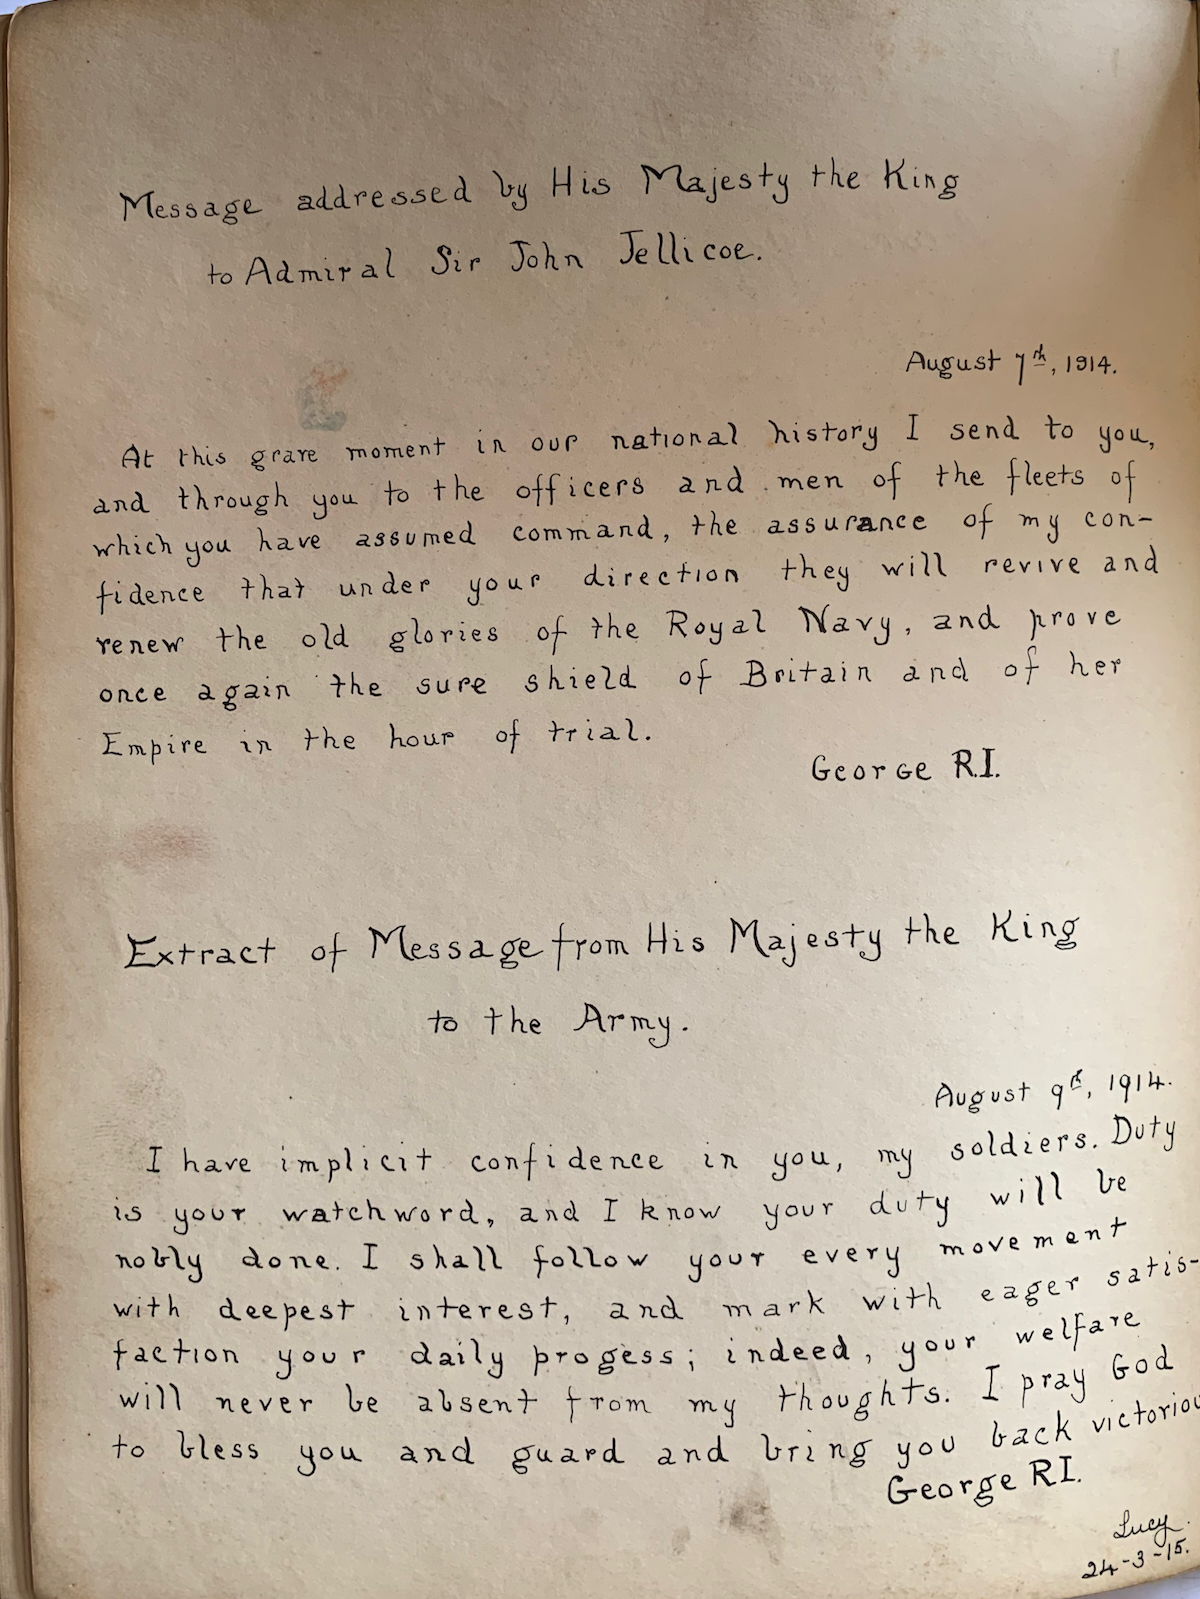 Message addressed by His Majesty the King
to Admiral Sir John Jellicoe.
August 7th, 1914.
At this grave moment in our national history I send to you,
and through you to the officers and men of the fleets of
which you have assumed command, the assurance of my con-
fidence that under your direction they will revive and
renew the old glories of the Royal Navy, and prove
once again the sure shield of Britain and of her
Empire in the hour of trial.
George R.I.
Extract of Message from His Majesty the King
to the Army.
August 9th, 1914.
I have implicit confidence in you, my soldiers. Duty
is your watchword, and I know your duty will be
nobly done. I shall follow your every movement
with deepest interest, and mark with eager satis-
faction your daily progess; indeed, your welfare
will never be absent from my thoughts. I pray God
to bless you and guard and bring you back victoriou
George R.I.
Lucy.
24-3-15.